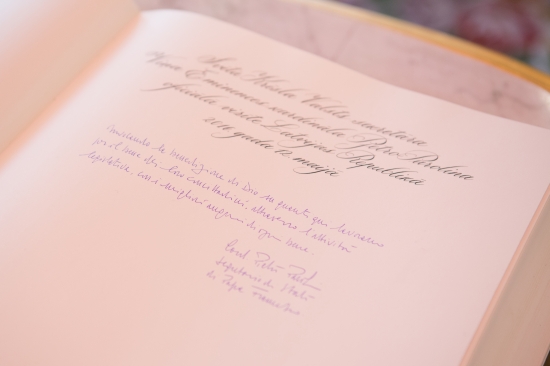 Svētā Krēsla Valsts sekretāra
Viņa Eminences kardināla Pietro Parolina
oficiālā vizīte Latvijas Republikā
2016. gada 12. maijs
Invocando la benedizione di Dio su quanti qui lavorano
per il bene dei loro concittadini, attraverso l'attività
legislativa, con i migliori auguri di ogni bene.
Card. Pietro Parolin
Segretario di Stato
di Papa Francesco